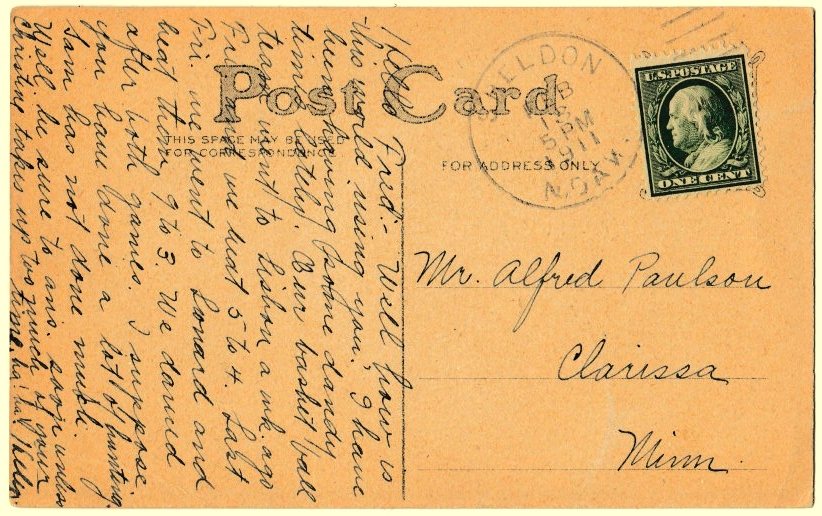 Post Card
THIS SPACE MAY BE USED
FOR CORRESPONDENCE
FOR ADDRESS ONLY
SHELDON
5 PM
1911
N.DAK.
U.S. POSTAGE
ONE CENT
Mr. Alfred Paulson
Clarissa
Minn.
Hello Fred:- Well how is
this world using you. I have
been having some dandy
times lately. Our basket ball
team went to Lisbon a wk. ago
Fri. and we beat 5 to 4. Last
Fri. we went to Lonard and
beat them 9 to 3. We danced
after both games. I suppose
you have done a lot of hunting.
Sam has not done much.
Well be sure to ans. soon unless
Christing takes up too much of your
time ha! ha!